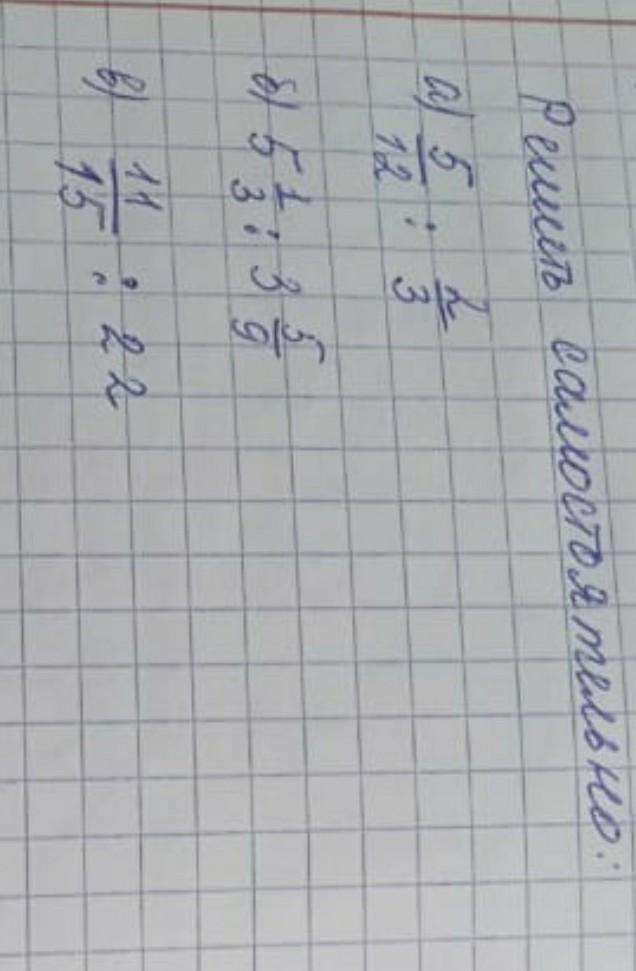 Решить самостоятельно:
а) 5/12 : 2/3
б) 5 1/3 : 3 5/9
в) 11/15 : 22